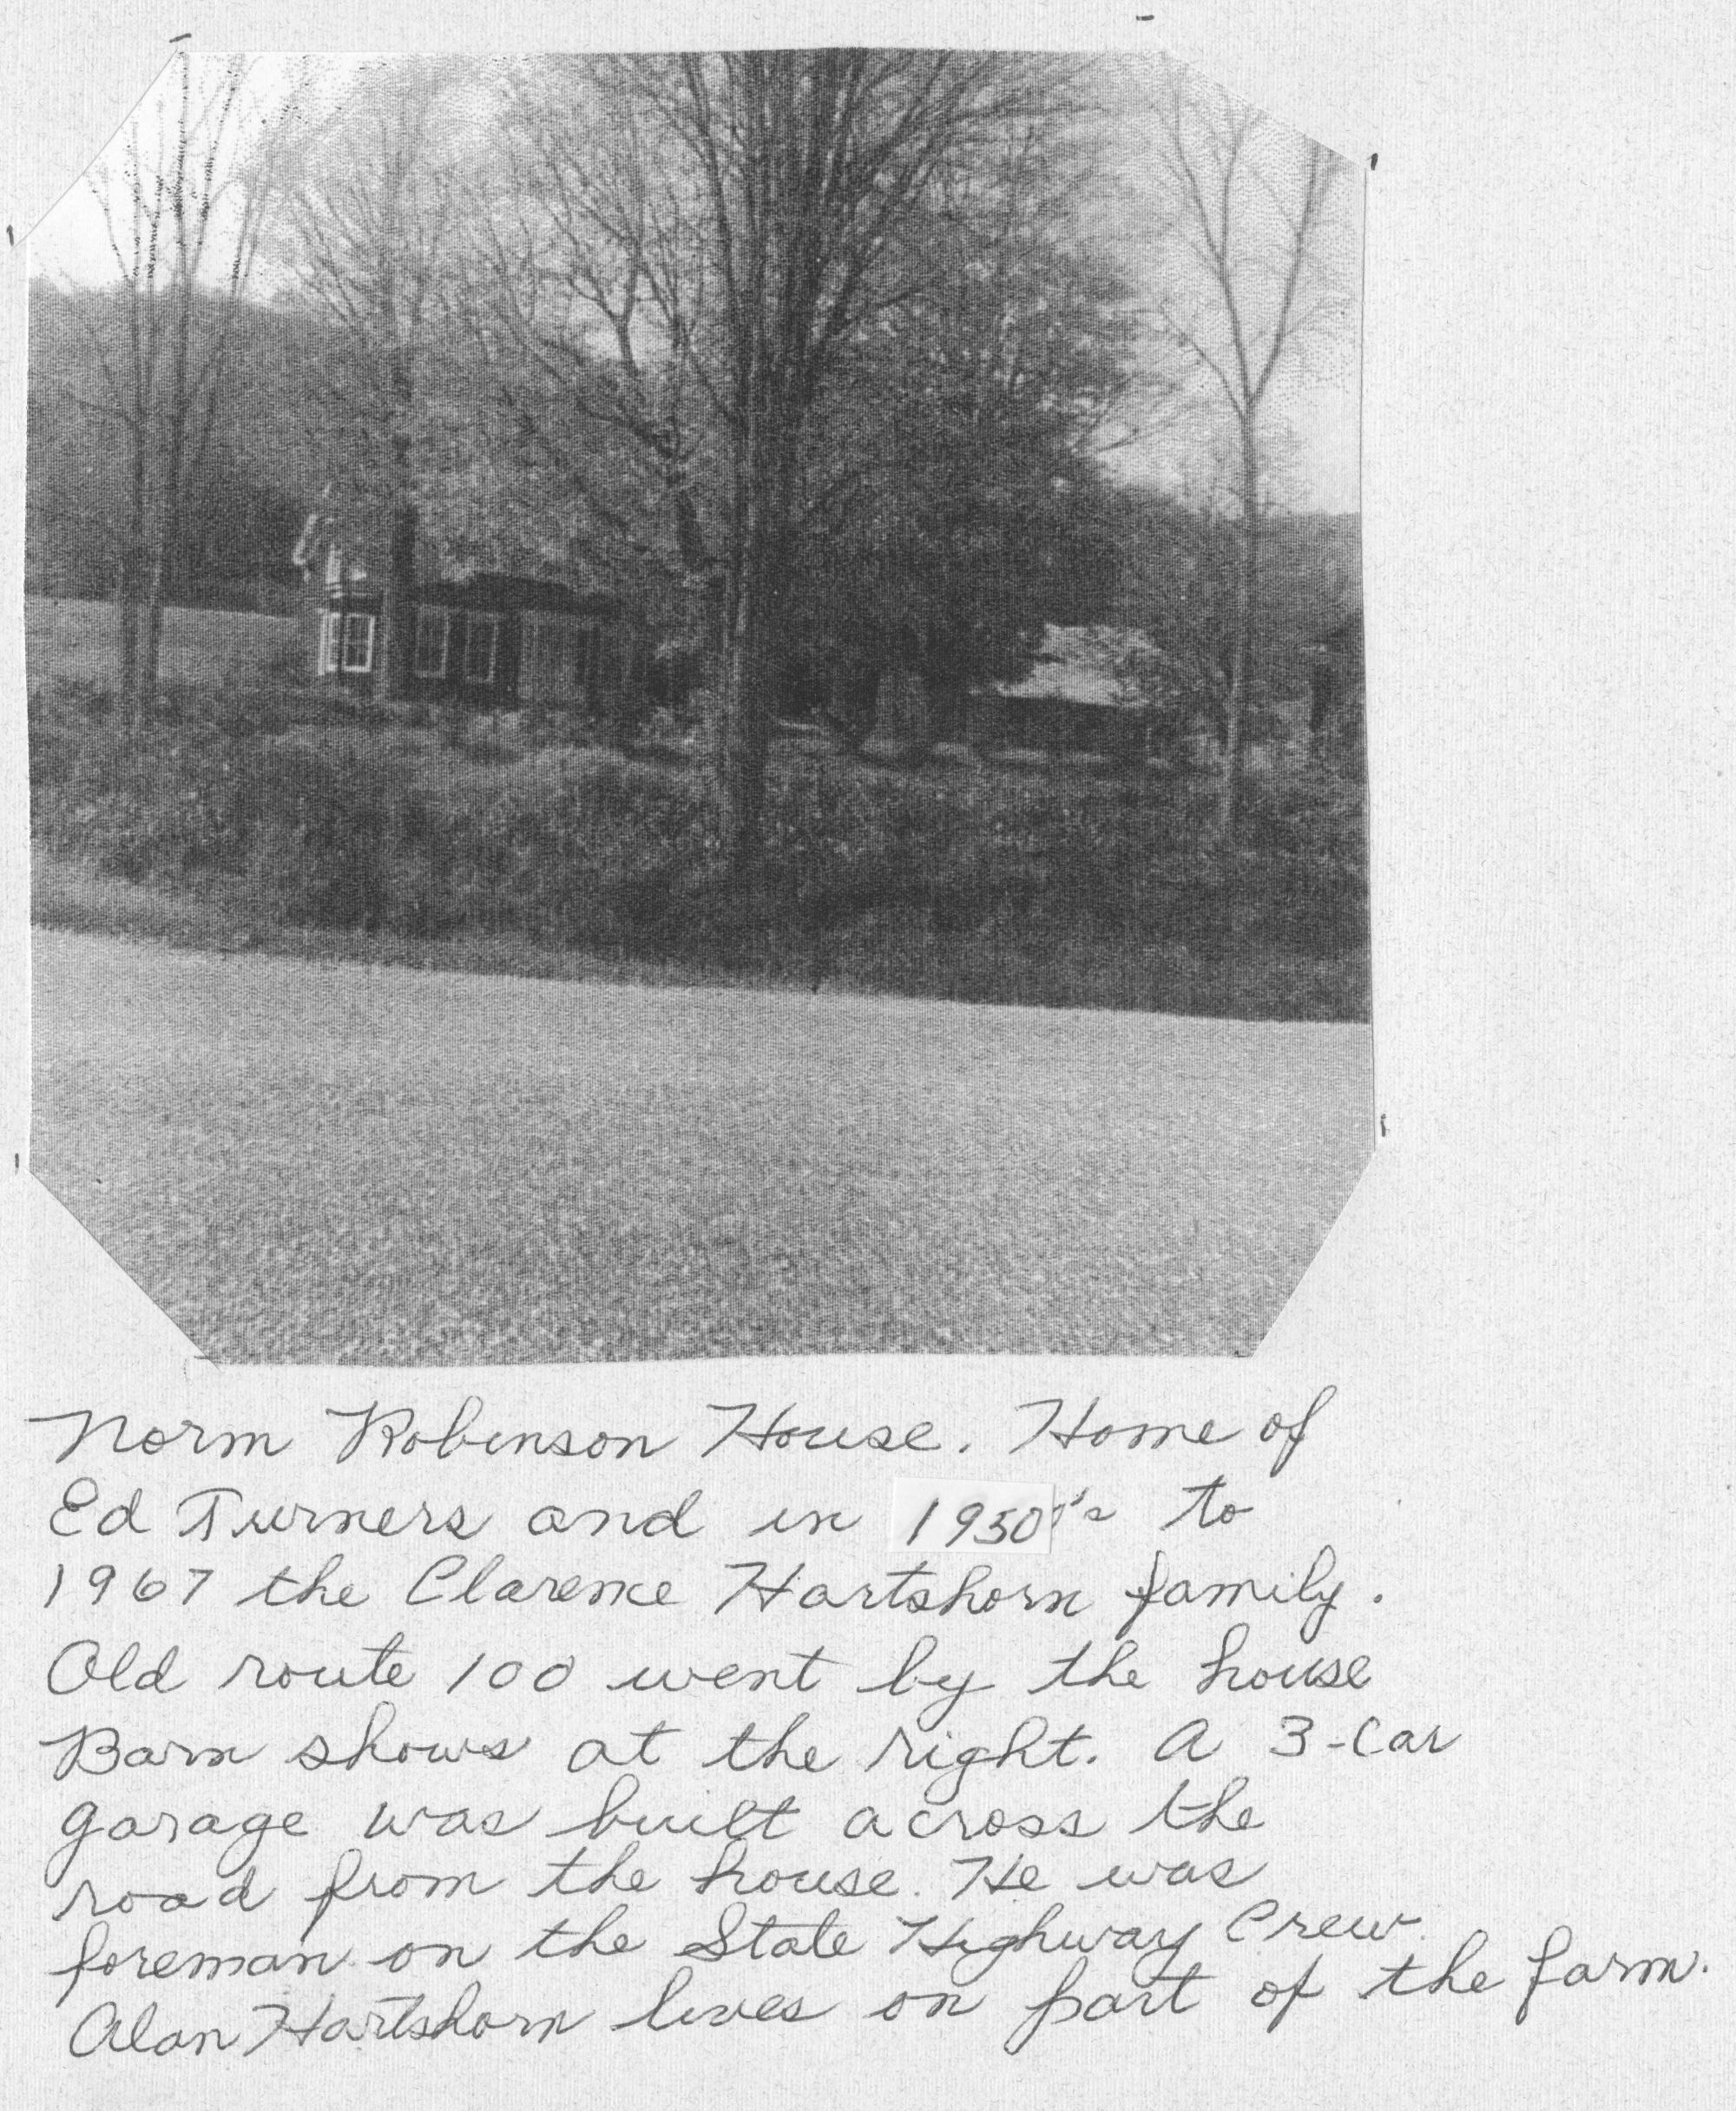 Norm Robinson House. Home of
Ed Turners and in 1950's to
1967 the Clarence Hartshorn family.
Old route 100 went by the house
Barn shows at the right. A 3-Car
garage was built across the
road from the house. He was
foreman on the State Highway Crew.
Alan Hartshorn lives on part of the farm.